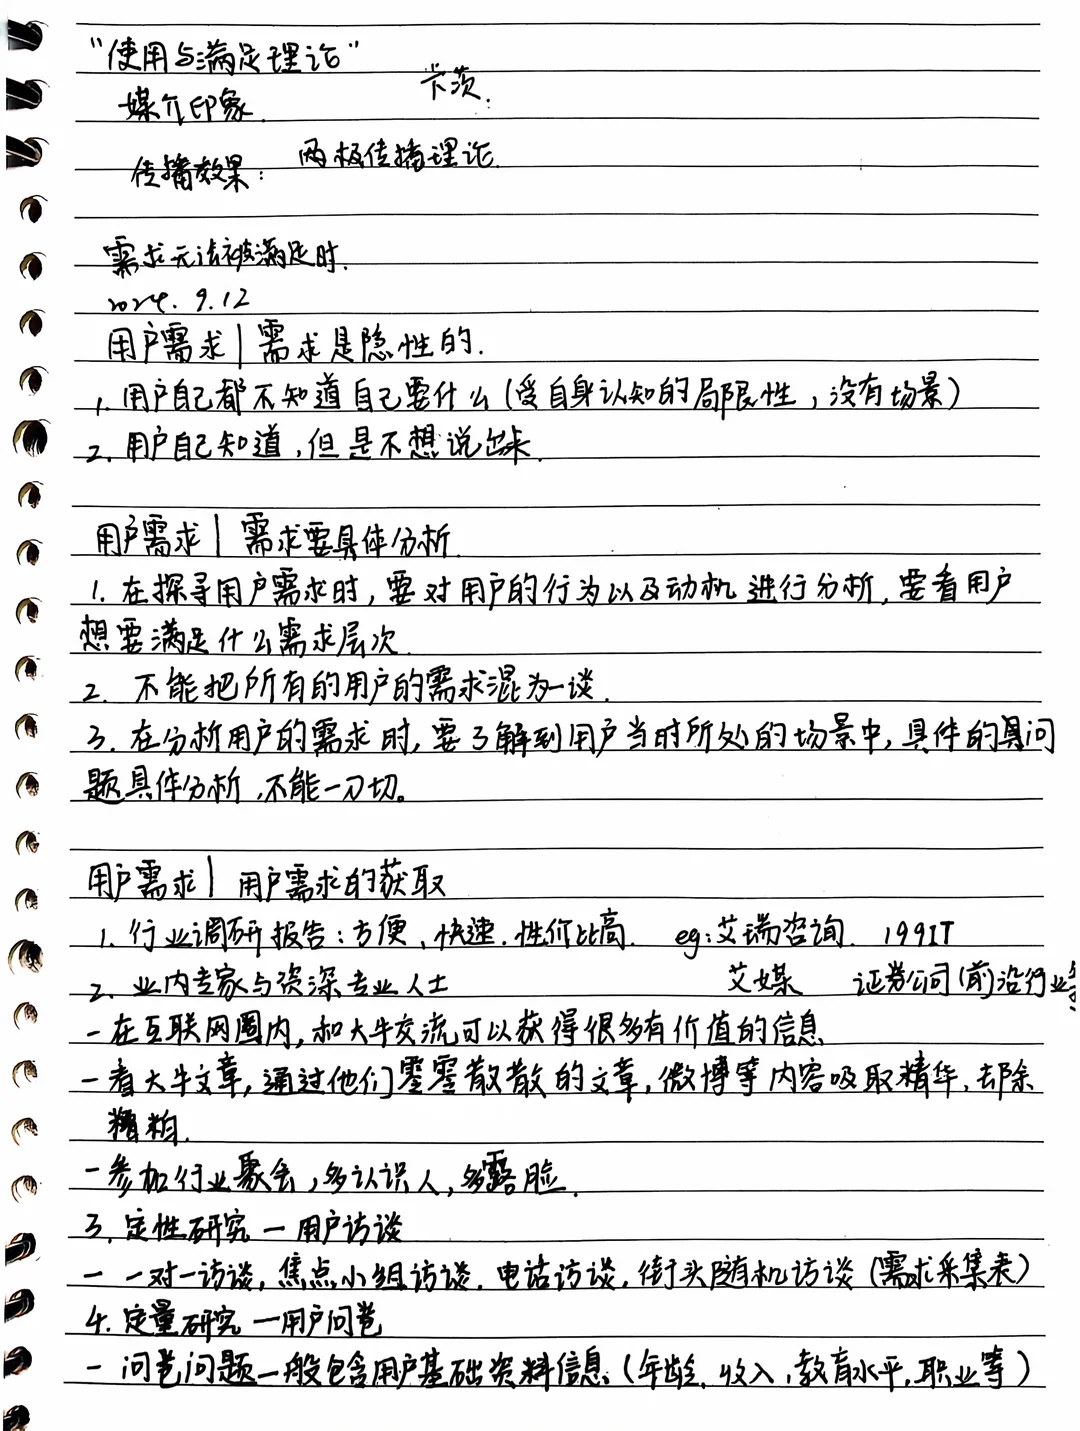 “使用与满足理论”
卡茨.
媒介印象.
传播效果: 两极传播理论.
需求无法被满足时.
2024. 9.12
用户需求 | 需求是隐性的.
1. 用户自己都不知道自己要什么(受自身认知的局限性,没有场景)
2. 用户自己知道,但是不想说出来.
用户需求 | 需求要具体分析.
1. 在探寻用户需求时,要对用户的行为以及动机进行分析,要看用户
想要满足什么需求层次.
2. 不能把所有的用户的需求混为一谈.
3. 在分析用户的需求时,要了解到用户当时所处的场景中,具体的具问
题具体分析,不能一刀切。
用户需求 | 用户需求的获取
1. 行业调研报告:方便、快速、性价比高. eg:艾瑞咨询. 199IT
2. 业内专家与资深专业人士 艾媒 证券公司(前沿行业
一在互联网圈内,和大牛交流可以获得很多有价值的信息
一看大牛文章,通过他们零零散散的文章,微博等内容吸取精华、去除
糟粕.
一参加行业聚会,多认识人,多露脸.
3. 定性研究 一 用户访谈
一 一对一访谈,焦点小组访谈、电话访谈,街头随机访谈(需求采集表)
4. 定量研究 一用户问卷
一 问卷问题一般包含用户基础资料信息.(年龄、收入、教育水平、职业等)